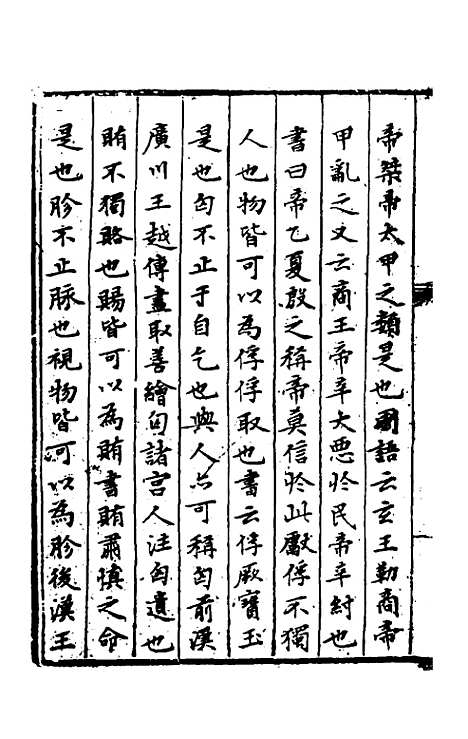 帝桀帝太甲之類是也國語云玄王勤商帝
甲亂之又云商王帝辛大惡於民帝辛紂也
書曰帝乙夏啟之稱帝莫信於此獻俘不獨
人也物皆可以為俘俘取也書云俘厥寶玉
是也匄不止于自乞也與人亦可稱匄前漢
廣川王越傳盡取善繒匄諸宮人注匄遺也
賄不獨賂也賜皆可以為賄書賄肅慎之命
是也胗不止脉也視物皆可以為胗後漢王